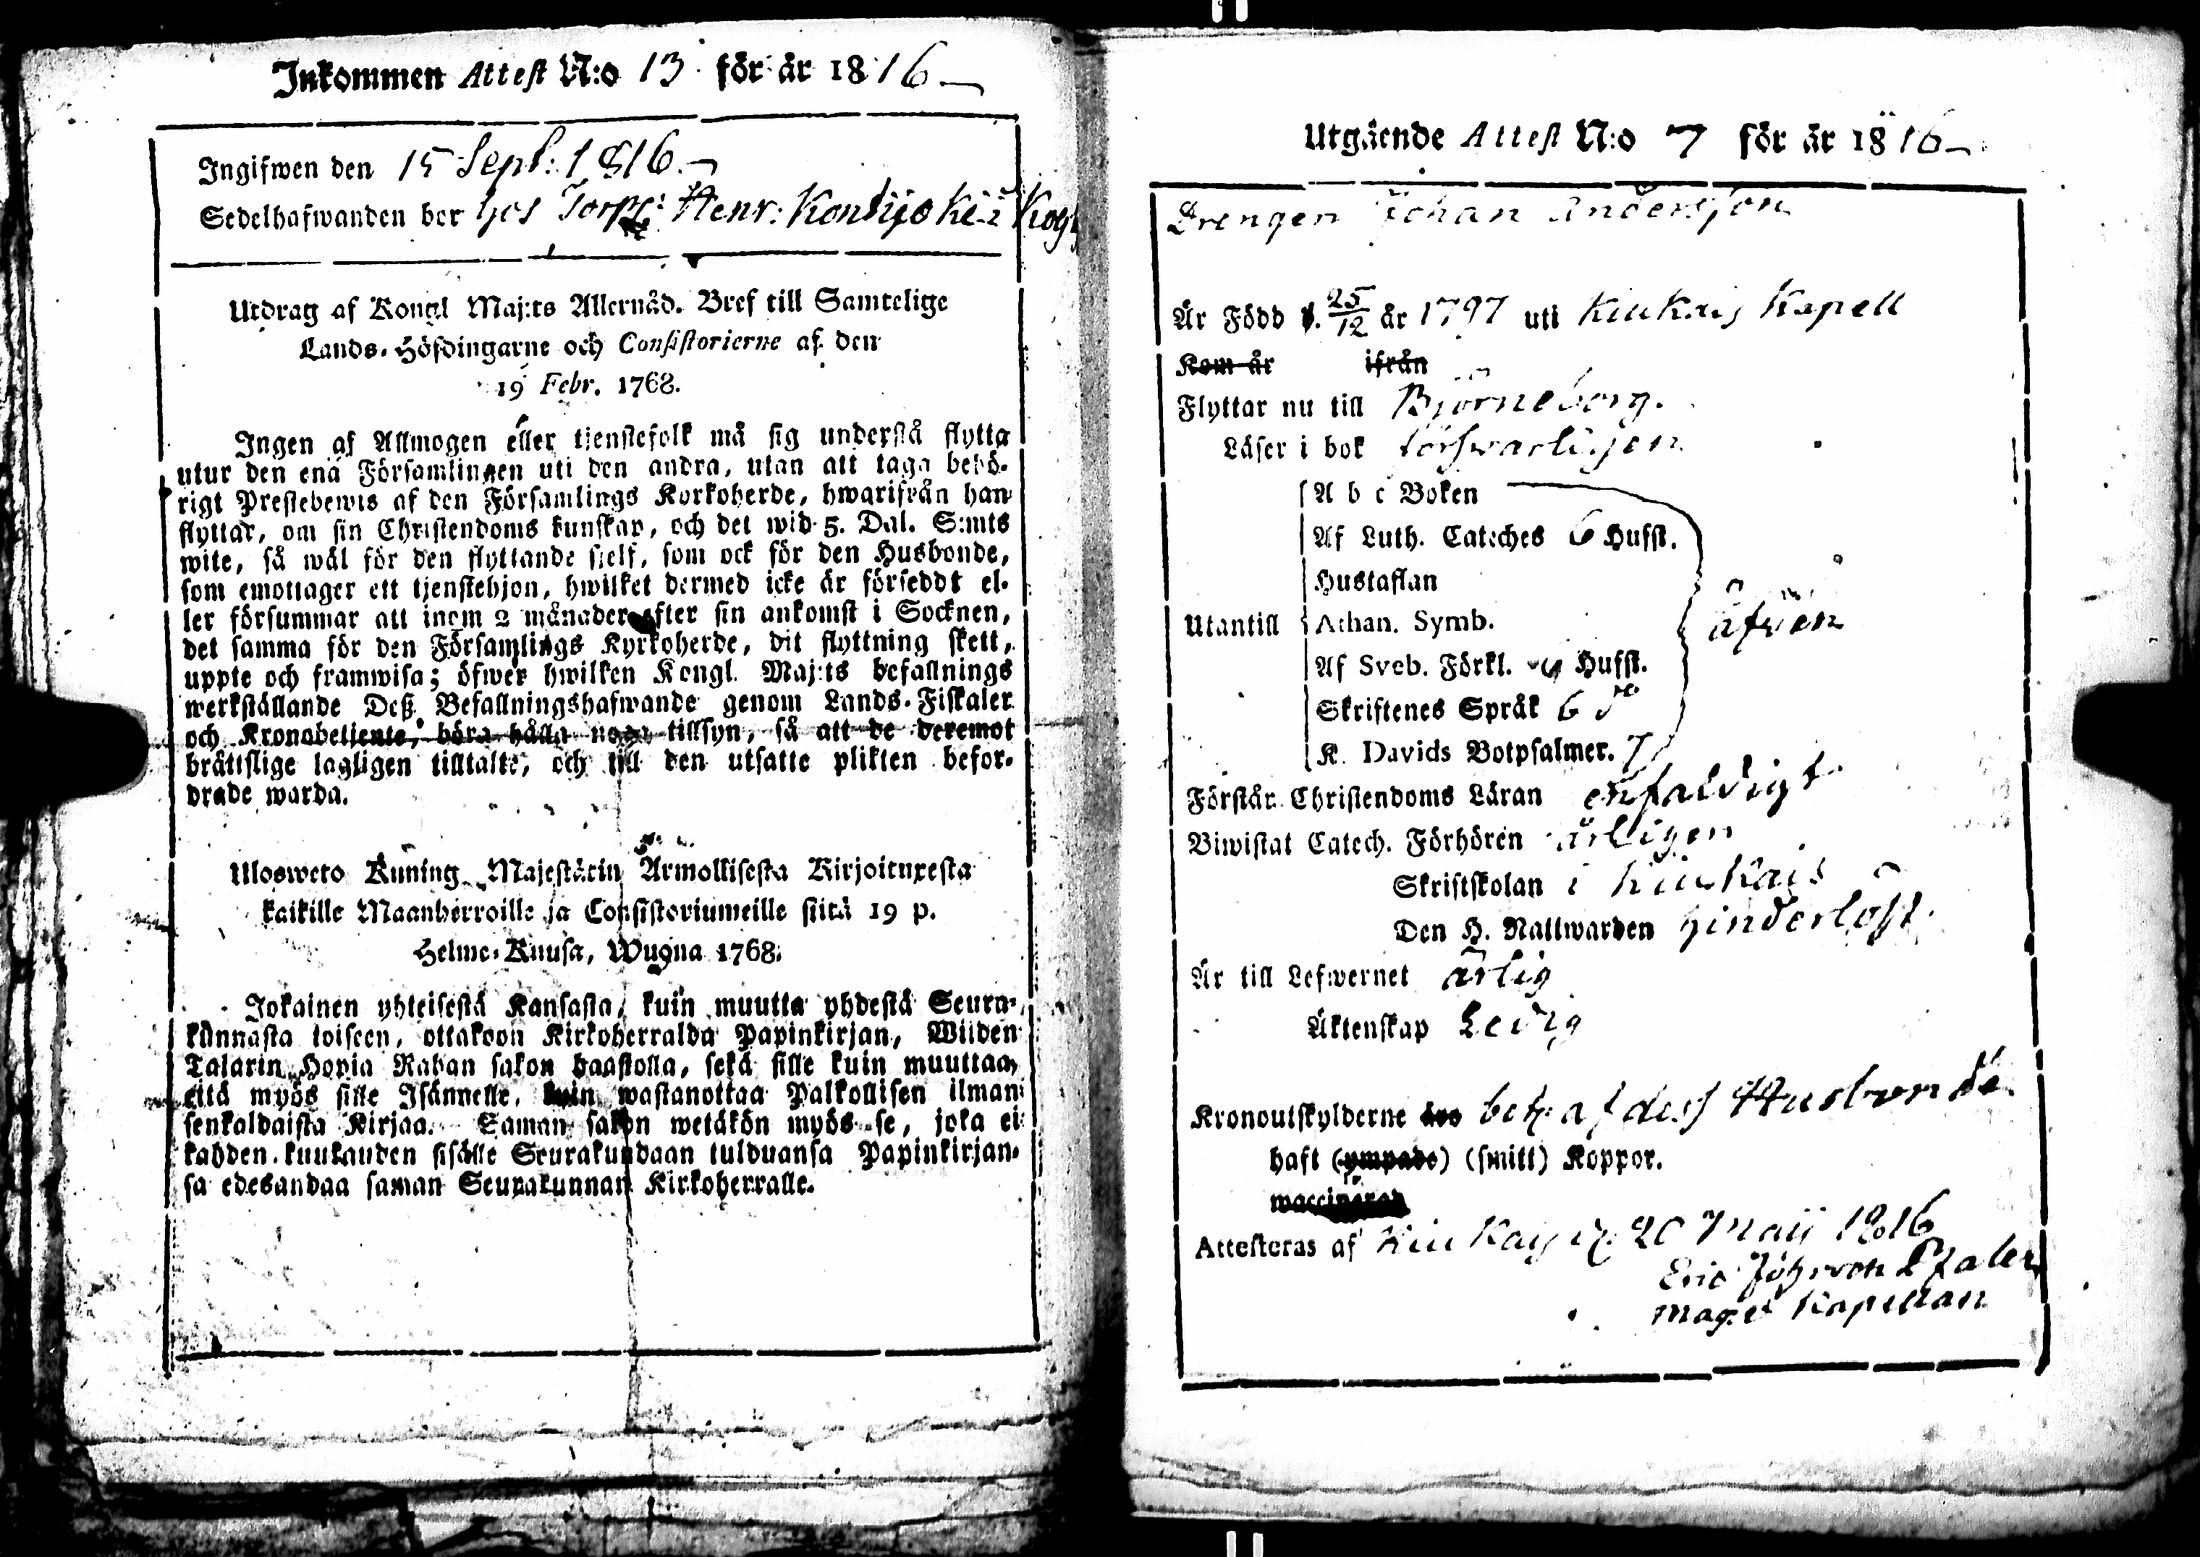 Inkommen Attest N:o 13 för år 1816
Ingifwen den 15 Sept: 1816.
Sedelhafwanden bor hos Torp: Henr: Kontijoki i
Utdrag af Kongl Maj:ts Allernåd. Bref till Samtelige
Lands-Höfdingarne och Consistorierne af den
19 Febr. 1768.
Ingen af Allmogen eller tjenstefolk må sig understå flytta
utur den ena Församlingen uti den andra, utan att taga behö-
rigt Prestebewis af den Församlings Kyrkoherde, hwarifrån han
flyttar, om sin Christendoms kunskap, och det wid 5. Dal. S:mts
wite, så wäl för den flyttande sjelf, som ock för den Husbonde,
som emottager ett tjenstehjon, hwilket dermed icke är förseddt el-
ler försummar att inom 2 månader efter sin ankomst i Socknen,
det samma för den Församlings Kyrkoherde, dit flyttning skett,
uppte och framwisa; öfwer hwilken Kongl. Maj:ts befallnings
werkställande Deß Befallningshafwande genom Lands-Fiskaler
och Kronobetjente, böra hålla noga tillsyn, så att de deremot
bråttslige lagligen tilltalte, och till den utsatte plikten befor-
drade warda.
Ulosweto Kuning. Majestätin Armollisesta Kirjoituxesta
kaikille Maanherroille ja Consistoriumeille siitä 19 p.
Helme-Kuusa, Wuonna 1768.
Jokainen yhteisestä Kansasta, kuin muutta yhdestä Seura-
kunnasta toiseen, ottakoon Kirkoherralda Papinkirjan, Wiiden
Talarin Hopia Rahan sakon haastolla, sekä sille kuin muuttaa,
että myös sille Isännelle, kuin wastanottaa Palkollisen ilman
senkaldaista Kirjaa. Saman sakon wetäkön myös se, joka ei
kahden kuukauden sisälle Seurakundaan tulduansa Papinkirjan-
sa edesandaa saman Seurakunnan Kirkoherralle.
Utgående Attest N:o 7 för år 1816
Drengen Johan Andersson
Är Född d. 25/12 år 1797 uti Kiukais Kapell
Kom år ifrån
Flyttar nu till Björneborg.
Läser i bok försvarligen
A b c Boken
Af Luth. Cateches 6 Hufst.
Hustaflan
Utantill Athan. Symb. äfven
Af Sveb. Förkl. Hufst.
Skriftenes Språk 6
K. Davids Botpsalmer. 7
Förstår Christendoms Läran enfaldigt
Biwistat Catech. Förhören årligen
Skriftskolan i Kiukais
Den H. Nattwarden hinderlöst
Är till Lefwernet ärlig
Äktenskap Ledig
Kronoutskylderne äro bet: af dess Husbonde
haft (ympade) (smitt) Koppor.
waccinerad
Attesteras af Kiukais d: 20 Maij 1816
Eric
Mag. et Kapellan